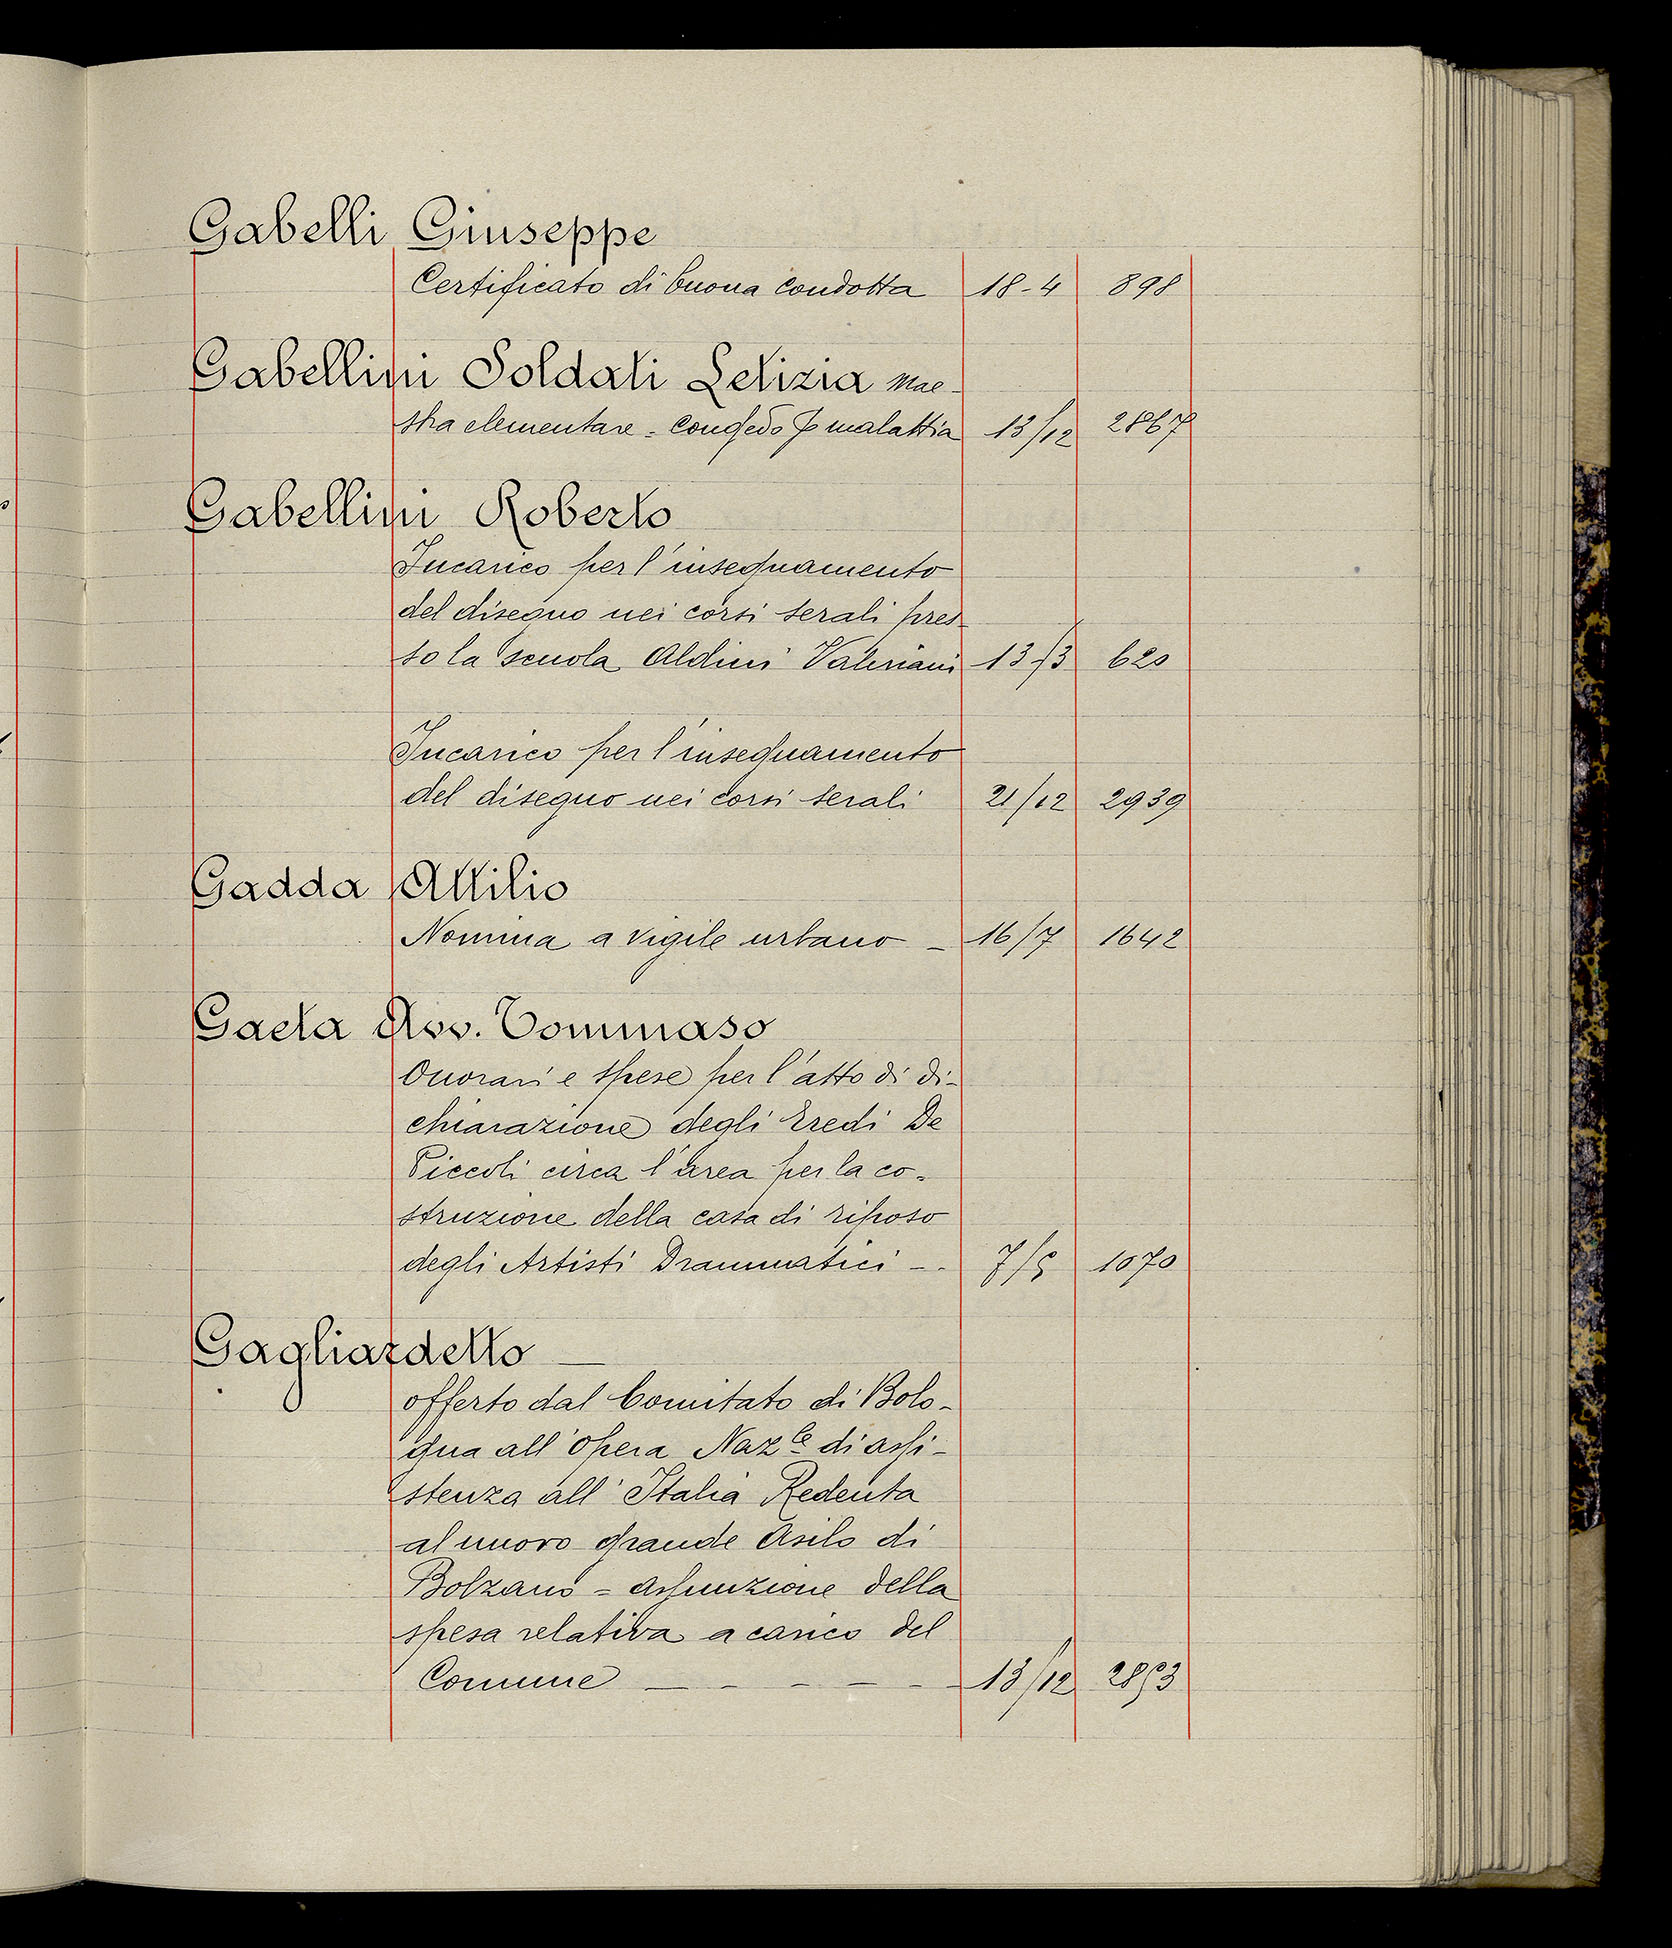 Gabelli Giuseppe
Certificato di buona condotta 18-4 898
Gabellini Soldati Letizia Mae-
stra elementare = congedo p malattia 13/12 2867
Gabellini Roberto
Incarico per l'insegnamento
del disegno nei corsi serali pres-
so la scuola Aldini Valeriani 13/3 620
Incarico per l'insegnamento
del disegno nei corsi serali 21/12 2939
Gadda Attilio
Nomina a vigile urbano - 16/7 1642
Gaeta Avv. Tommaso
Onorari e spese per l'atto di di-
chiarazione degli Eredi De
Piccoli circa l'area per la co-
struzione della casa di riposo
degli Artisti Drammatici - 7/5 1070
Gagliardetto
offerto dal Comitato di Bolo-
gna all'opera Naz.le di assi-
stenza all'Italia Redenta
al nuovo grande Asilo di
Bolzano = assunzione della
spesa relativa a carico del
Comune - - - - - 13/12 2853